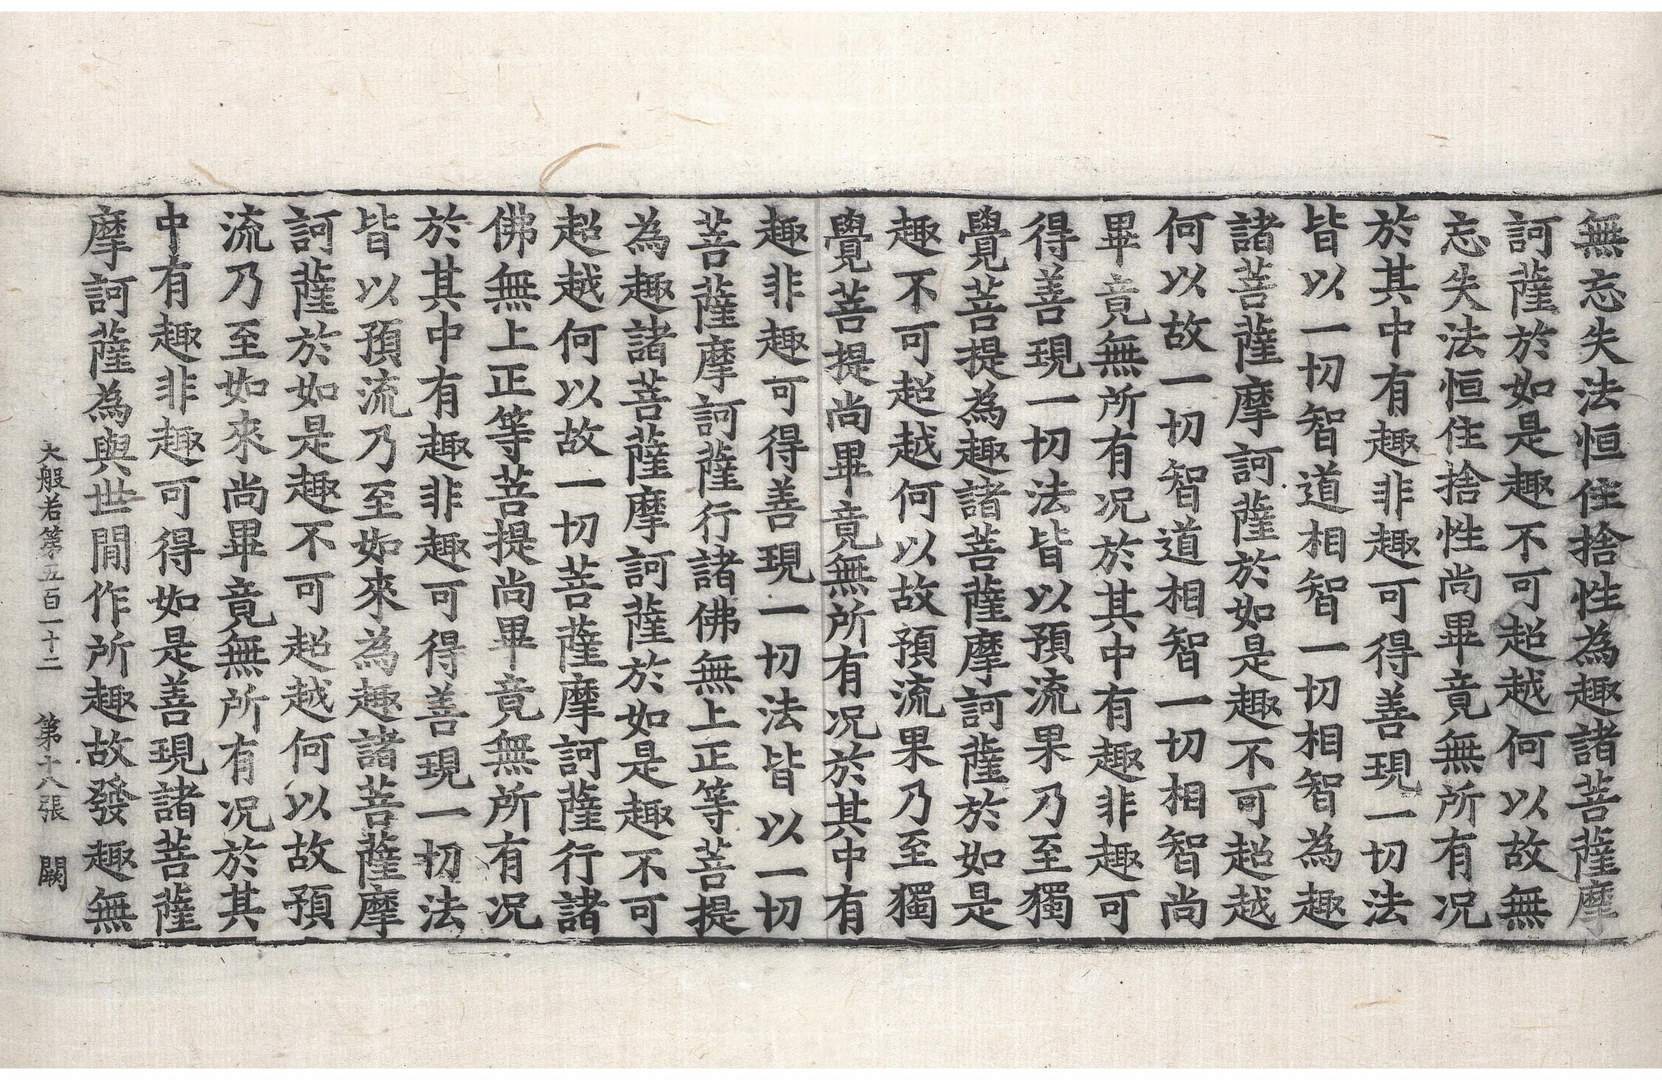 無忘失法恒住捨性為趣諸菩薩摩
訶薩於如是趣不可超越何以故無
忘失法恒住捨性尚畢竟無所有况
於其中有趣非趣可得善現一切法
皆以一切智道相智一切相智為趣
諸菩薩摩訶薩於如是趣不可超越
何以故一切智道相智一切相智尚
畢竟無所有况於其中有趣非趣可
得善現一切法皆以預流果乃至獨
覺菩提為趣諸菩薩摩訶薩於如是
趣不可超越何以故預流果乃至獨
覺菩提尚畢竟無所有况於其中有
趣非趣可得善現一切法皆以一切
菩薩摩訶薩行諸佛無上正等菩提
為趣諸菩薩摩訶薩於如是趣不可
超越何以故一切菩薩摩訶薩行諸
佛無上正等菩提尚畢竟無所有况
於其中有趣非趣可得善現一切法
皆以預流乃至如來為趣諸菩薩摩
訶薩於如是趣不可超越何以故預
流乃至如來尚畢竟無所有况於其
中有趣非趣可得如是善現諸菩薩
摩訶薩為與世間作所趣故發趣無
大般若第五百一十二 第十八張 闕